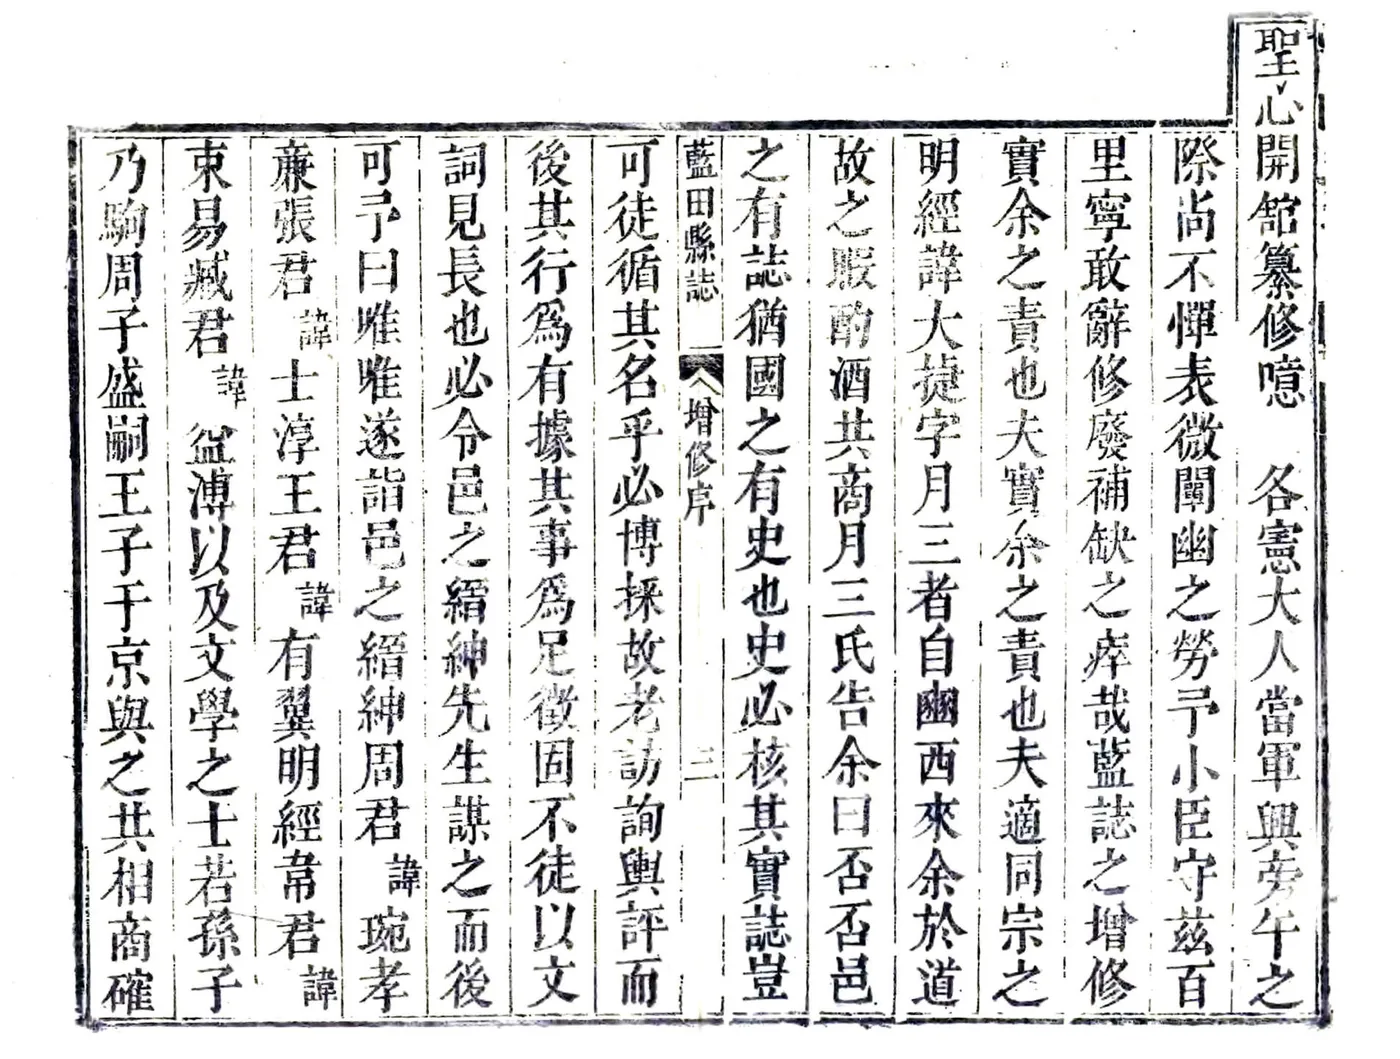 聖心開舘纂修噫　各憲大人當軍興旁午之
際尚不憚表微闡幽之勞予小臣守兹百
里寧敢辭修廢補缺之瘁哉藍誌之增修
實余之責也夫實余之責也夫適同宗之
明經諱大捷字月三者自豳西來余於道
故之暇酌酒共商月三氏告余曰否否邑
之有誌猶國之有史也史必核其實誌豈
藍田縣誌　增修序　二
可徒循其名乎必博採故老訪詢輿評而
後其行爲有據其事爲足徵固不徒以文
詞見長也必令邑之縉紳先生謀之而後
可予曰唯唯遂詣邑之縉紳周君諱琬孝
亷張君諱士淳王君諱有翼明經常君諱
束易臧君諱盆溥以及文學之士若孫子
乃駒周子盛嗣王子于京與之共相商確